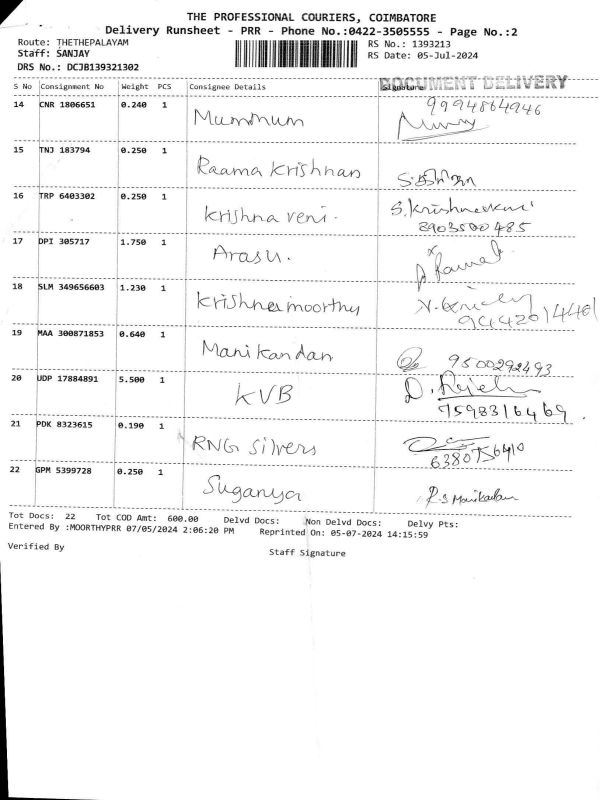 THE PROFESSIONAL COURIERS, COIMBATORE
Delivery Runsheet - PRR - Phone No.:0422-3505555 - Page No.:2
Route: THETHEPALAYAM
RS No.: 1393213
Staff: SANJAY
RS Date: 05-Jul-2024
DRS No.: DCJB139321302
DOCUMENT DELIVERY
S No Consignment No Weight PCS Consignee Details Signature
14 CNR 1806651 0.240 1 Mummum 9994864946
15 TNJ 183794 0.250 1 Raama Krishnan
16 TRP 6403302 0.250 1 Krishna veni. 8903500485
17 DPI 305717 1.750 1 Arasu.
18 SLM 349656603 1.230 1 Krishnamoorthy
19 MAA 300871853 0.640 1 Manikandan 9500292493
20 UDP 17884891 5.500 1 KVB 7598316469
21 PDK 8323615 0.190 1 RNG Silvers 6380756410
22 GPM 5399728 0.250 1 Suganya
Tot Docs: 22 Tot COD Amt: 600.00 Delvd Docs: Non Delvd Docs: Delvy Pts:
Entered By :MOORTHYPRR 07/05/2024 2:06:20 PM Reprinted On: 05-07-2024 14:15:59
Verified By
Staff Signature